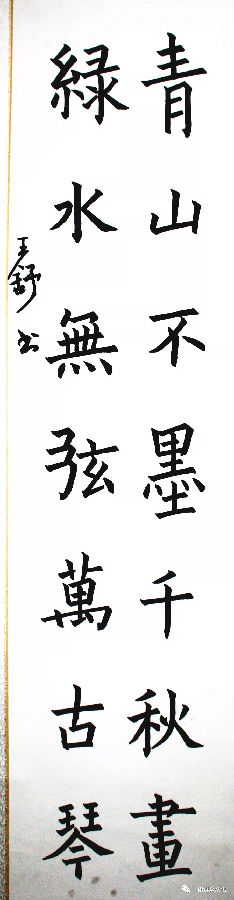 青山不墨千秋畫
緑水無弦萬古琴
王舒书